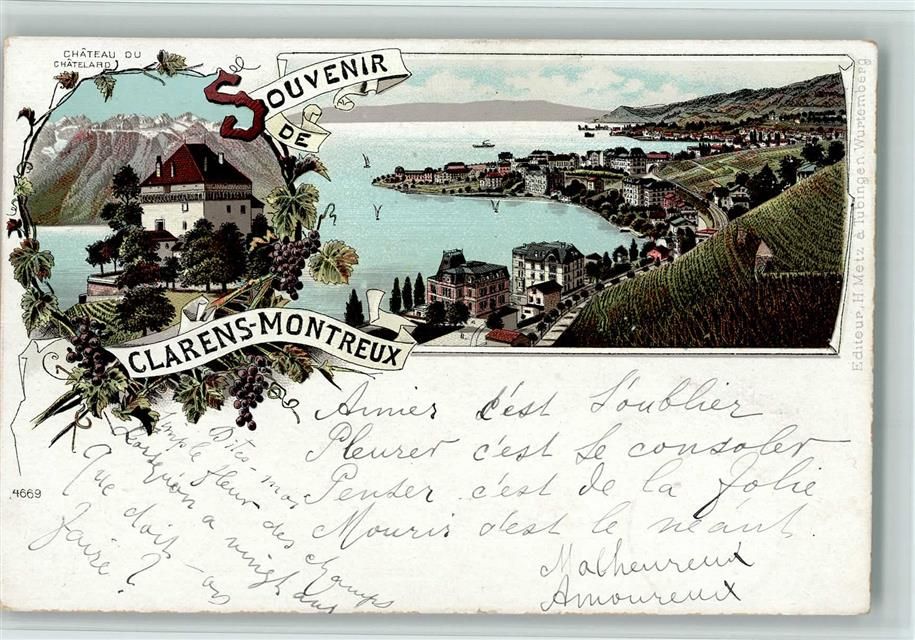 CHÂTEAU DU
CHÂTELARD
SOUVENIR
DE
CLARENS-MONTREUX
Editeur, H. Metz à Tubingen Wurtemberg
4669
Aimer c'est S'oublier
Pleurer c'est Se consoler
Penser c'est de la Folie
Mourir c'est le néant.
Malheureux
Amoureux
Dites-moi
simple fleur des champs
Lorsqu'on a vingt ans
Que doit-on
Faire?